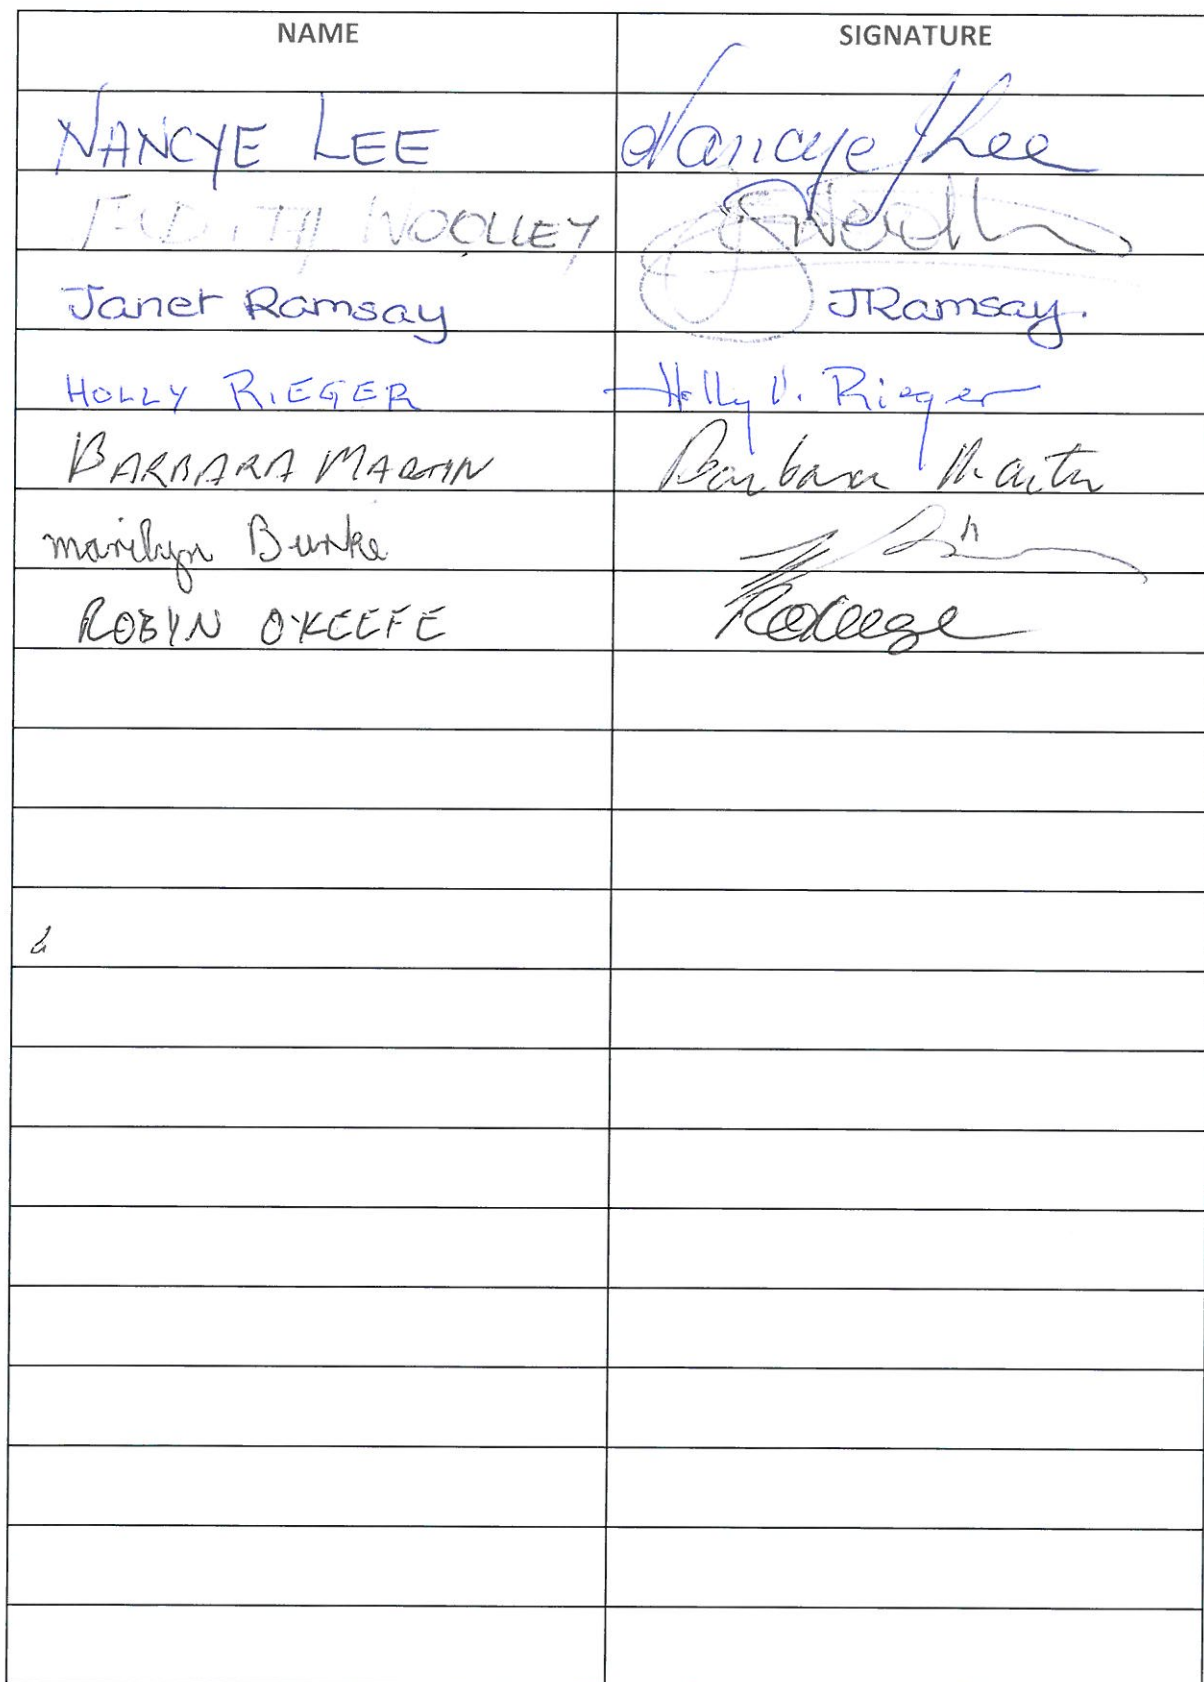 NAME SIGNATURE
NANCYE LEE Nancye J Lee
JUDITH WOOLLEY
Janet Ramsay JRamsay.
HOLLY RIEGER Holly V. Rieger
BARBARA MARTIN Barbara Martin
marilyn Burke
ROBYN O'KEEFE ROKeefe